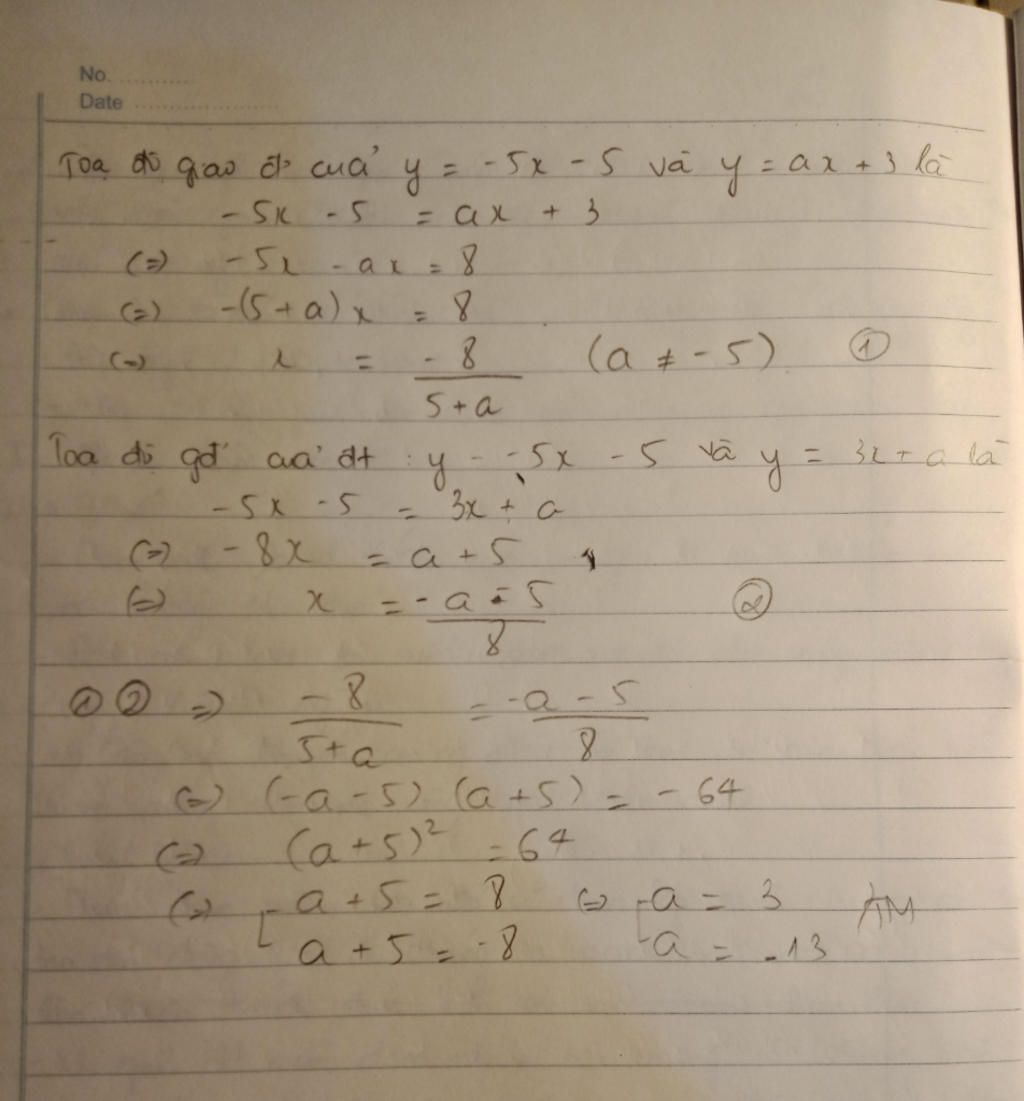 No. ............
Date ........................
Toạ độ giao đ' của y = -5x - 5 và y = ax + 3 là
-5x - 5 = ax + 3
(=) -5x - ax = 8
(=) -(5 + a) x = 8
(=) x = -8/(5+a) (a ≠ -5) ①
Toạ độ gđ' của đt : y = -5x - 5 và y = 3x + a là
-5x - 5 = 3x + a
(=) -8x = a + 5
(=) x = (-a - 5)/8 ②
① ② => -8/(5+a) = (-a - 5)/8
(=) (-a - 5) (a + 5) = -64
(=) (a + 5)² = 64
(=) [ a + 5 = 8 (=) [ a = 3
a + 5 = -8 a = -13